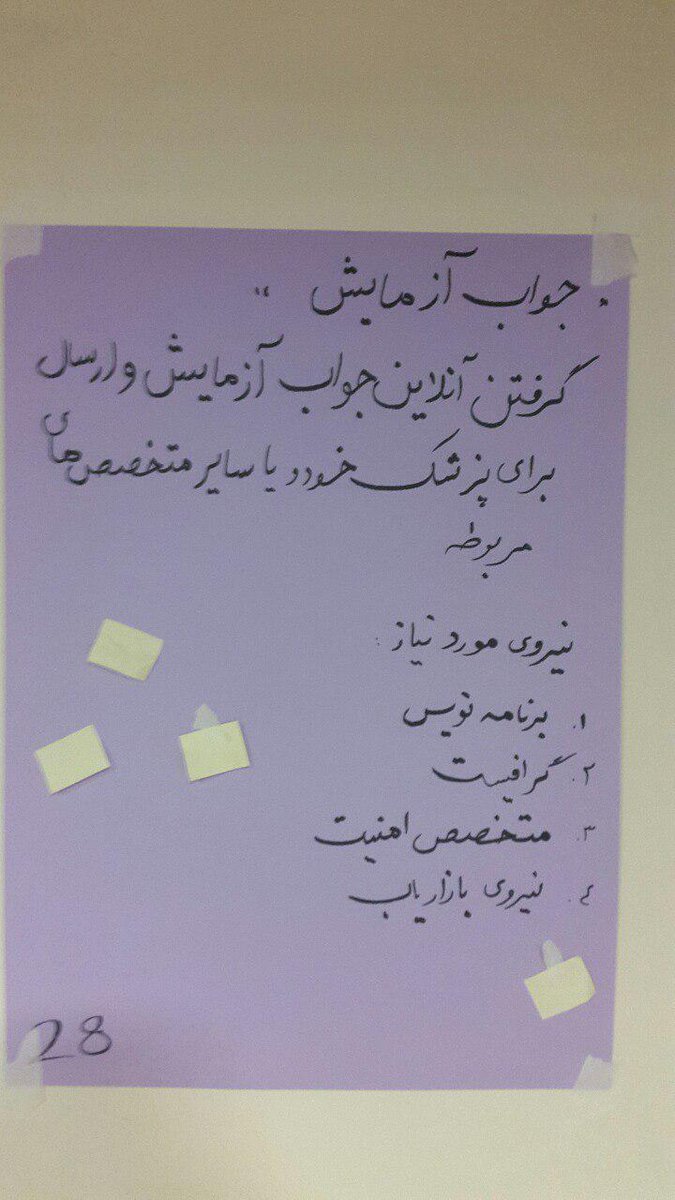 . جواب آزمایش "
گرفتن آنلاین جواب آزمایش و ارسال
برای پزشک خود و یا سایر متخصص‌های
مربوطه
نیروی مورد نیاز :
۱. برنامه نویس
۲. گرافیست
۳. متخصص امنیت
٤. نیروی بازاریاب
28